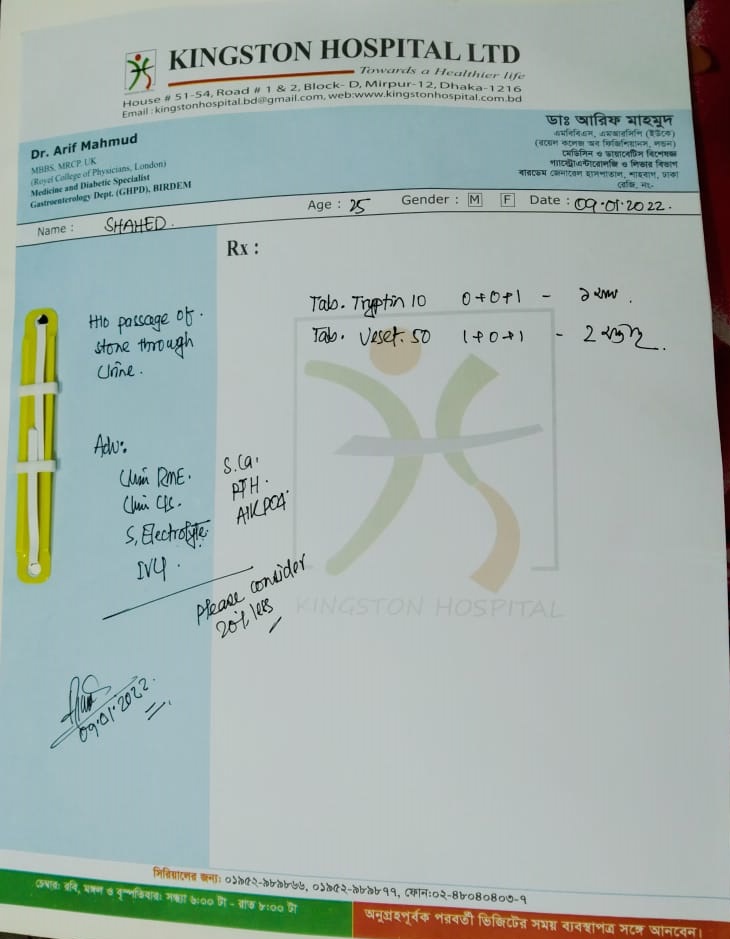 KINGSTON HOSPITAL LTD
Towards a Healthier life
House # 51-54, Road # 1 & 2, Block- D, Mirpur-12, Dhaka-1216
Email : kingstonhospital.bd@gmail.com, web:www.kingstonhospital.com.bd
Dr. Arif Mahmud
MBBS, MRCP, UK
(Royel College of Physicians, London)
Medicine and Diabetic Specialist
Gastroenterology Dept. (GHPD), BIRDEM
ডাঃ আরিফ মাহমুদ
এমবিবিএস, এমআরসিপি (ইউকে)
(রয়েল কলেজ অব ফিজিশিয়ানস, লন্ডন)
মেডিসিন ও ডায়াবেটিস বিশেষজ্ঞ
গ্যাস্ট্রোএন্টারোলজি ও লিভার বিভাগ
বারডেম জেনারেল হাসপাতাল, শাহবাগ, ঢাকা
রেজি, নং-
Name : SHAHED. Age : 25 Gender : M F Date : 09.01.2022.
Rx :
H/o passage of
stone through
Urine.
Tab. Tryptin 10 0+0+1 -
Tab. Veset. 50 1+0+1 - 2
Adv:
Urin RME.
Urin C/s.
S, Electrolyte
IVU.
S.Ca.
PTH.
AlKPO4
Please consider
20% less
09.01.2022.
KINGSTON HOSPITAL
সিরিয়ালের জন্য: ০১৯৫২-৯৮৯৮৬৬, ০১৯৫২-৯৮৯৮৭৭, ফোন:০২-৪৮০৪০৪০৩-৭
চেম্বার: রবি, মঙ্গল ও বৃহস্পতিবার: সন্ধ্যা ৬:০০ টা - রাত ৮:০০ টা
অনুগ্রহপূর্বক পরবর্তী ভিজিটের সময় ব্যবস্থাপত্র সঙ্গে আনবেন।